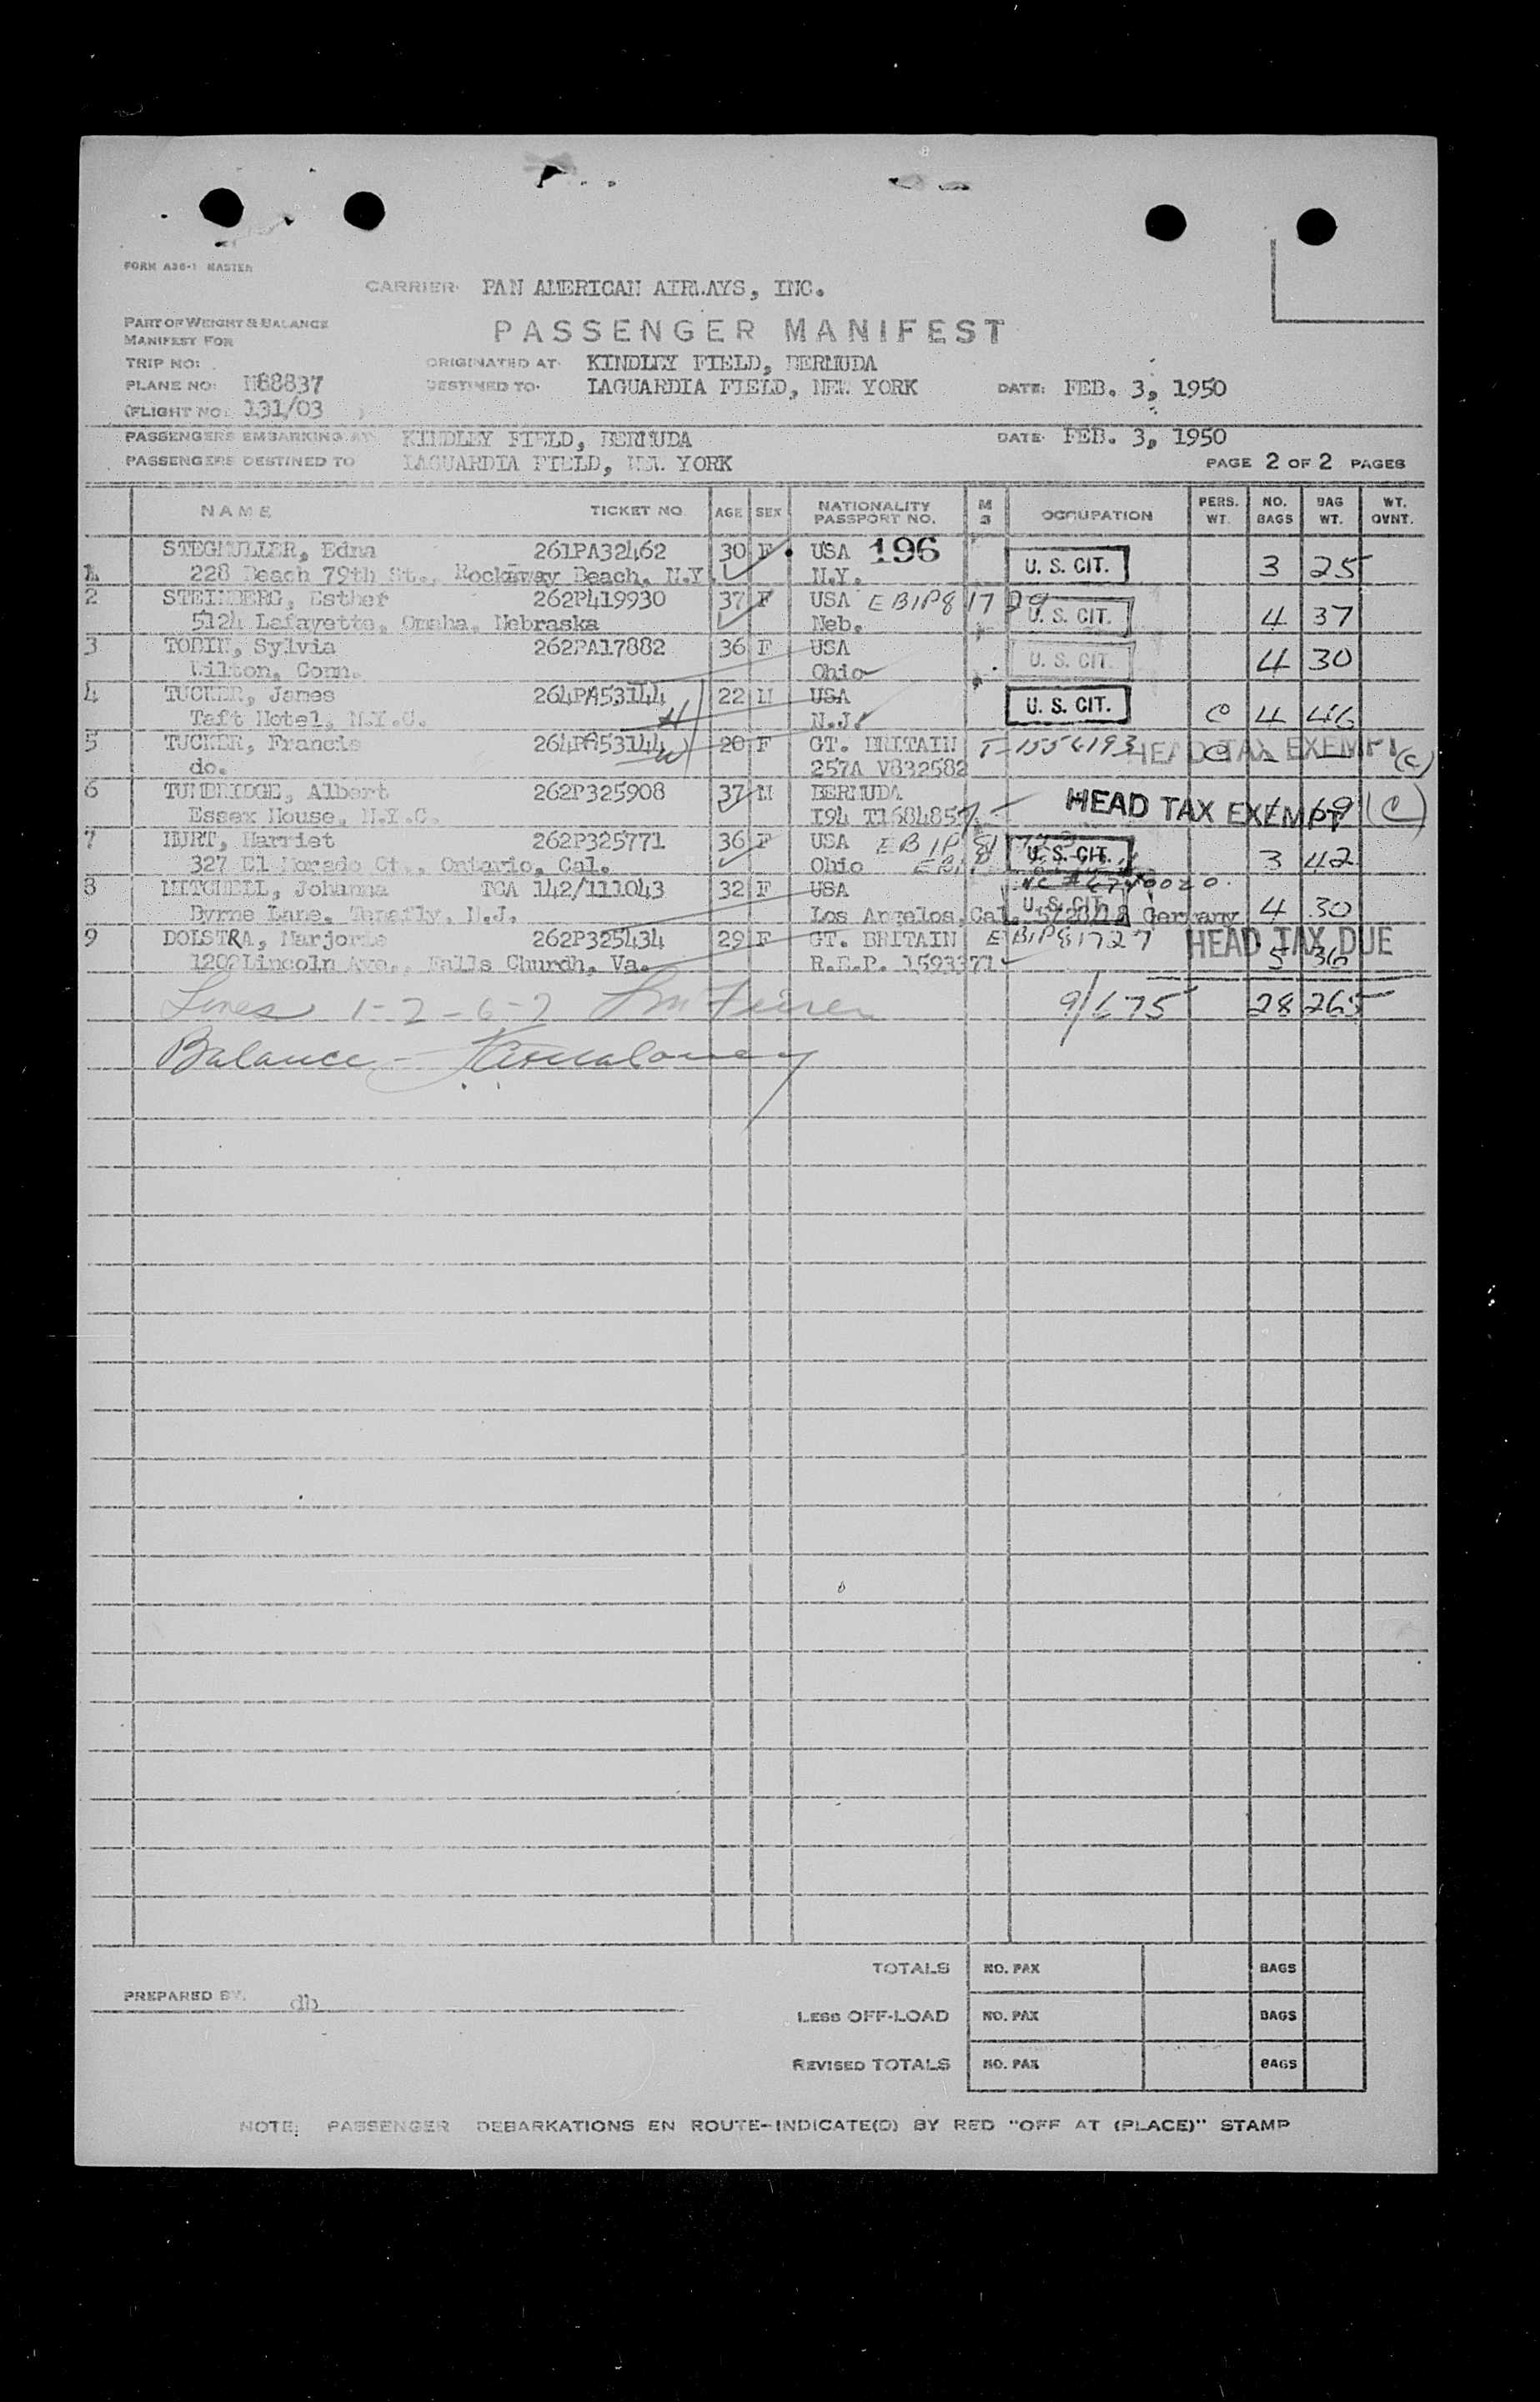 FORM A36-1 MASTER
CARRIER: PAN AMERICAN AIRWAYS, INC.
PART OF WEIGHT & BALANCE
MANIFEST FOR
PASSENGER MANIFEST
TRIP NO: ORIGINATED AT: KINDLEY FIELD, BERMUDA
PLANE NO: N88837 DESTINED TO: LAGUARDIA FIELD, NEW YORK DATE: FEB. 3, 1950
(FLIGHT NO: 131/03 )
PASSENGERS EMBARKING AT KINDLEY FIELD, BERMUDA DATE: FEB. 3, 1950
PASSENGERS DESTINED TO LAGUARDIA FIELD, NEW YORK PAGE 2 OF 2 PAGES
NAME TICKET NO. AGE SEX NATIONALITY PASSPORT NO. M S OCCUPATION PERS. WT. NO. BAGS BAG WT. WT. OVNT.
STEGMULLER, Edna 261PA32462 30 F USA 196
1 228 Beach 79th St., Rockaway Beach, N.Y. N.Y. U. S. CIT. 3 25
2 STEINBERG, Esther 262P419930 37 F USA EB1P81729
5124 Lafayette, Omaha, Nebraska Neb. U. S. CIT. 4 37
3 TOBIN, Sylvia 262PA17882 36 F USA
Wilton, Conn. Ohio U. S. CIT. 4 30
4 TUCKER, James 264PA53144 22 M USA
Taft Hotel, N.Y.C. H N.J. U. S. CIT. C 4 46
5 TUCKER, Francis 264PA53144 20 F GT. BRITAIN T-1556193 HEAD TAX EXEMPT (C)
do. W 257A V832582
6 TUMBRIDGE, Albert 262P325908 37 M BERMUDA
Essex House, N.Y.C. I94 T1684857 HEAD TAX EXEMPT 1 19 (C)
7 HURT, Harriet 262P325771 36 F USA EB1P81728
327 El Morado Ct., Ontario, Cal. Ohio U. S. CIT. 3 42
8 MITCHELL, Johanna TCA 142/111043 32 F USA NC #6740020
Byrne Lane, Tenafly, N.J. Los Angelos, Cal. Germany U. S. CIT. 4 30
9 DOLSTRA, Marjorie 262P325434 29 F GT. BRITAIN EB1P81727 HEAD TAX DUE
1202 Lincoln Ave., Falls Churdh, Va. R.E.P. 1593371 5 36
Lines 1-2-6-7 9/675 28 265
Balance -
TOTALS NO. PAX BAGS
PREPARED BY. db
LESS OFF-LOAD NO. PAX BAGS
REVISED TOTALS NO. PAX BAGS
NOTE: PASSENGER DEBARKATIONS EN ROUTE-INDICATE(D) BY RED "OFF AT (PLACE)" STAMP